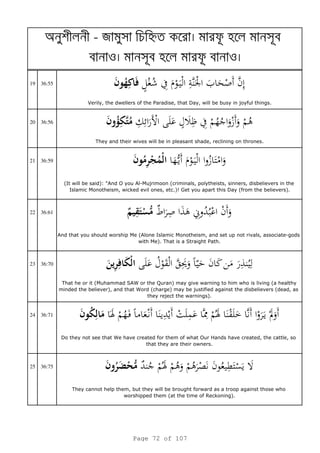 অনুশীলনী - জামুসা চিহ্নিত করো। মারফূ হলে মানসূব
বানাও। মানসূব হলে মারফূ বানাও।
19 36:55 إِنَّ أَصْحَابَ الْجَنَّةِ الْيَوْمَ فِي شُغُلٍ فَاكِهُونَ
Verily, the dwellers of the Paradise, that Day, will be busy in joyful things.
20 36:56 هُمْ وَأَزْوَاجُهُمْ فِي ظِلَالٍ عَلَى الْأَرَائِكِ مُتَّكِئُونَ
They and their wives will be in pleasant shade, reclining on thrones.
21 36:59 وَامْتَازُوا الْيَوْمَ أَيُّهَا الْمُجْرِمُونَ
(It will be said): "And O you Al-Mujrimoon (criminals, polytheists, sinners, disbelievers in the
Islamic Monotheism, wicked evil ones, etc.)! Get you apart this Day (from the believers).
22 36:61 وَأَنِ اعْبُدُونِي هَٰذَا صِرَاطٌ مُّسْتَقِيمٌ
And that you should worship Me (Alone Islamic Monotheism, and set up not rivals, associate-gods
with Me). That is a Straight Path.
23 36:70 لِيُنذِرَ مَن كَانَ حَيًّا وَيَحِقَّ الْقَوْلُ عَلَى الْكَافِرِينَ
That he or it (Muhammad SAW or the Quran) may give warning to him who is living (a healthy
minded the believer), and that Word (charge) may be justified against the disbelievers (dead, as
they reject the warnings).
24 36:71 أَوَلَمْ يَرَوْا أَنَّا خَلَقْنَا لَهُم مِّمَّا عَمِلَتْ أَيْدِينَا أَنْعَامًا فَهُمْ لَهَا مَالِكُونَ
Do they not see that We have created for them of what Our Hands have created, the cattle, so
that they are their owners.
25 36:75 لَا يَسْتَطِيعُونَ نَصْرَهُمْ وَهُمْ لَهُمْ جُندٌ مُّحْضَرُونَ
They cannot help them, but they will be brought forward as a troop against those who
worshipped them (at the time of Reckoning).
Page 72 of 107